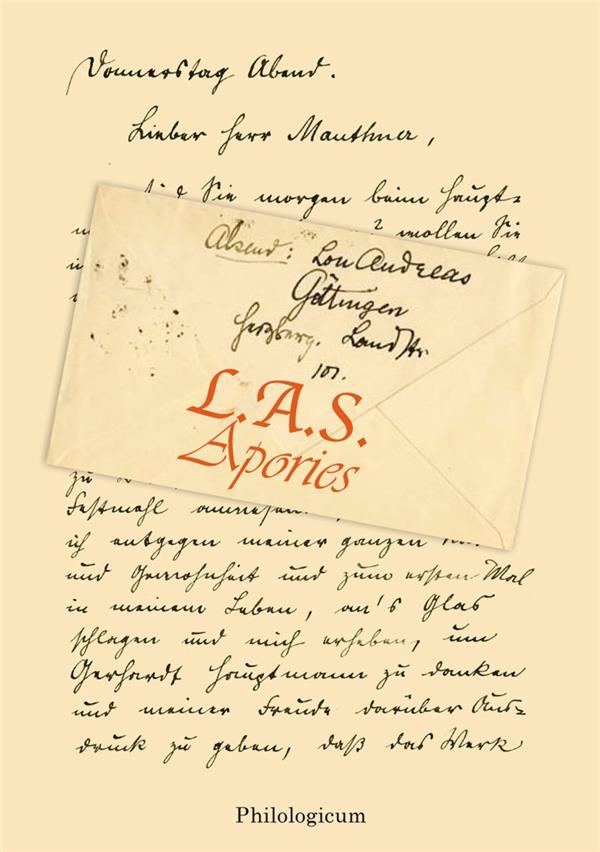 Donnerstag Abend.
Lieber Herr Mauthner,
Sie morgen beim Haupt=
? wollen Sie
Absend: Lou Andreas
Göttingen
Herzberg. Landstr
101.
L.A.S.
Apories
zu
Festmahl
ich entgegen meiner ganzen
und Gewohnheit und zum ersten Mal
in meinem Leben, an's Glas
schlagen und mich erheben, um
Gerhardt Hauptmann zu danken
und meiner Freude darüber Aus=
druck zu geben, daß das Werk
Philologicum